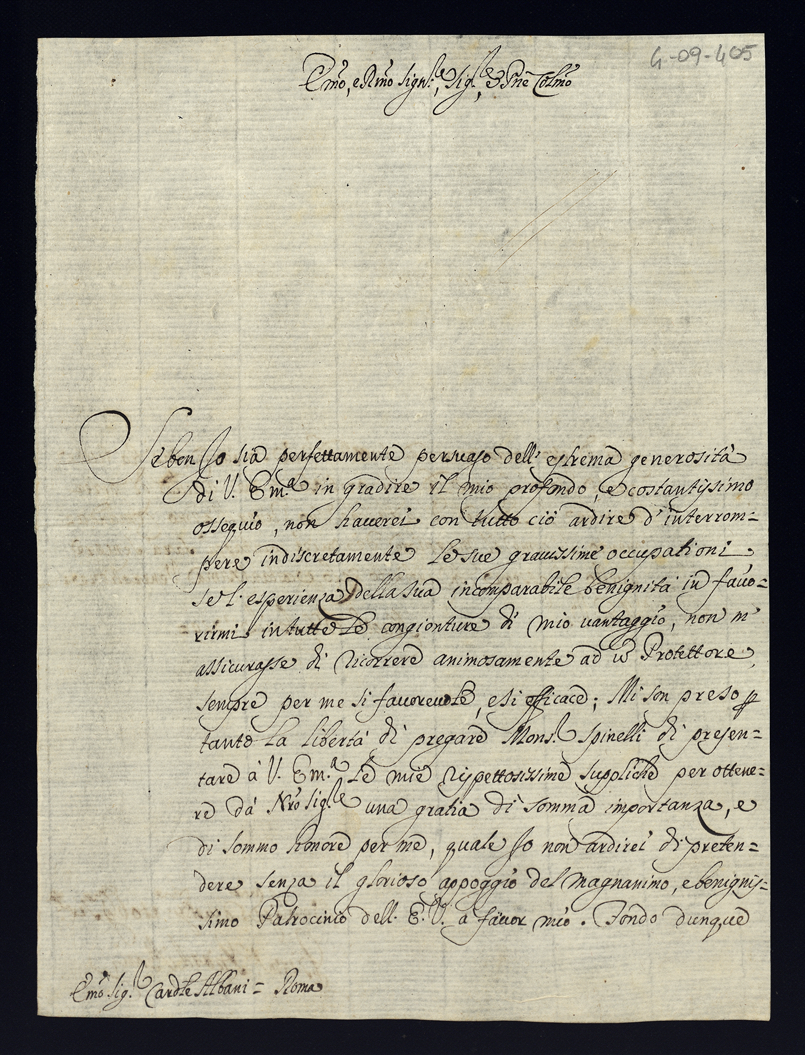 4-09-405
Emo, e Rmo Sign.r, Sig.r, e Pne Colmo
Seben Jo sia perfettamente persuaso dell' estrema generosità
di V. Em.a in gradire il mio profondo, e costantissimo
ossequio, non haverei con tutto ciò ardire d'interrom=
pere indiscretamente le sue gravissime occupationi
se l'esperienza della sua incomparabile benignità in favo=
rirmi in tutte le congionture di mio vantaggio, non m'
assicurasse di ricorrere animosamente ad un Protettore,
sempre per me si favorevole, e si efficace; Mi son preso p
tanto la libertà di pregare Mons.r Spinelli di presen=
tare à V. Em.a le mie rispettosissime suppliche per ottene=
re dà Nro Sig.re una gratia di somma importanza, e
di sommo honore per me, quale Jo non ardirei di preten=
dere senza il glorioso appoggio del magnanimo, e benignis=
simo Patrocinio dell' E. V. a favor mio. Fondo dunque
Emo Sig.r Cardle Albani = Roma